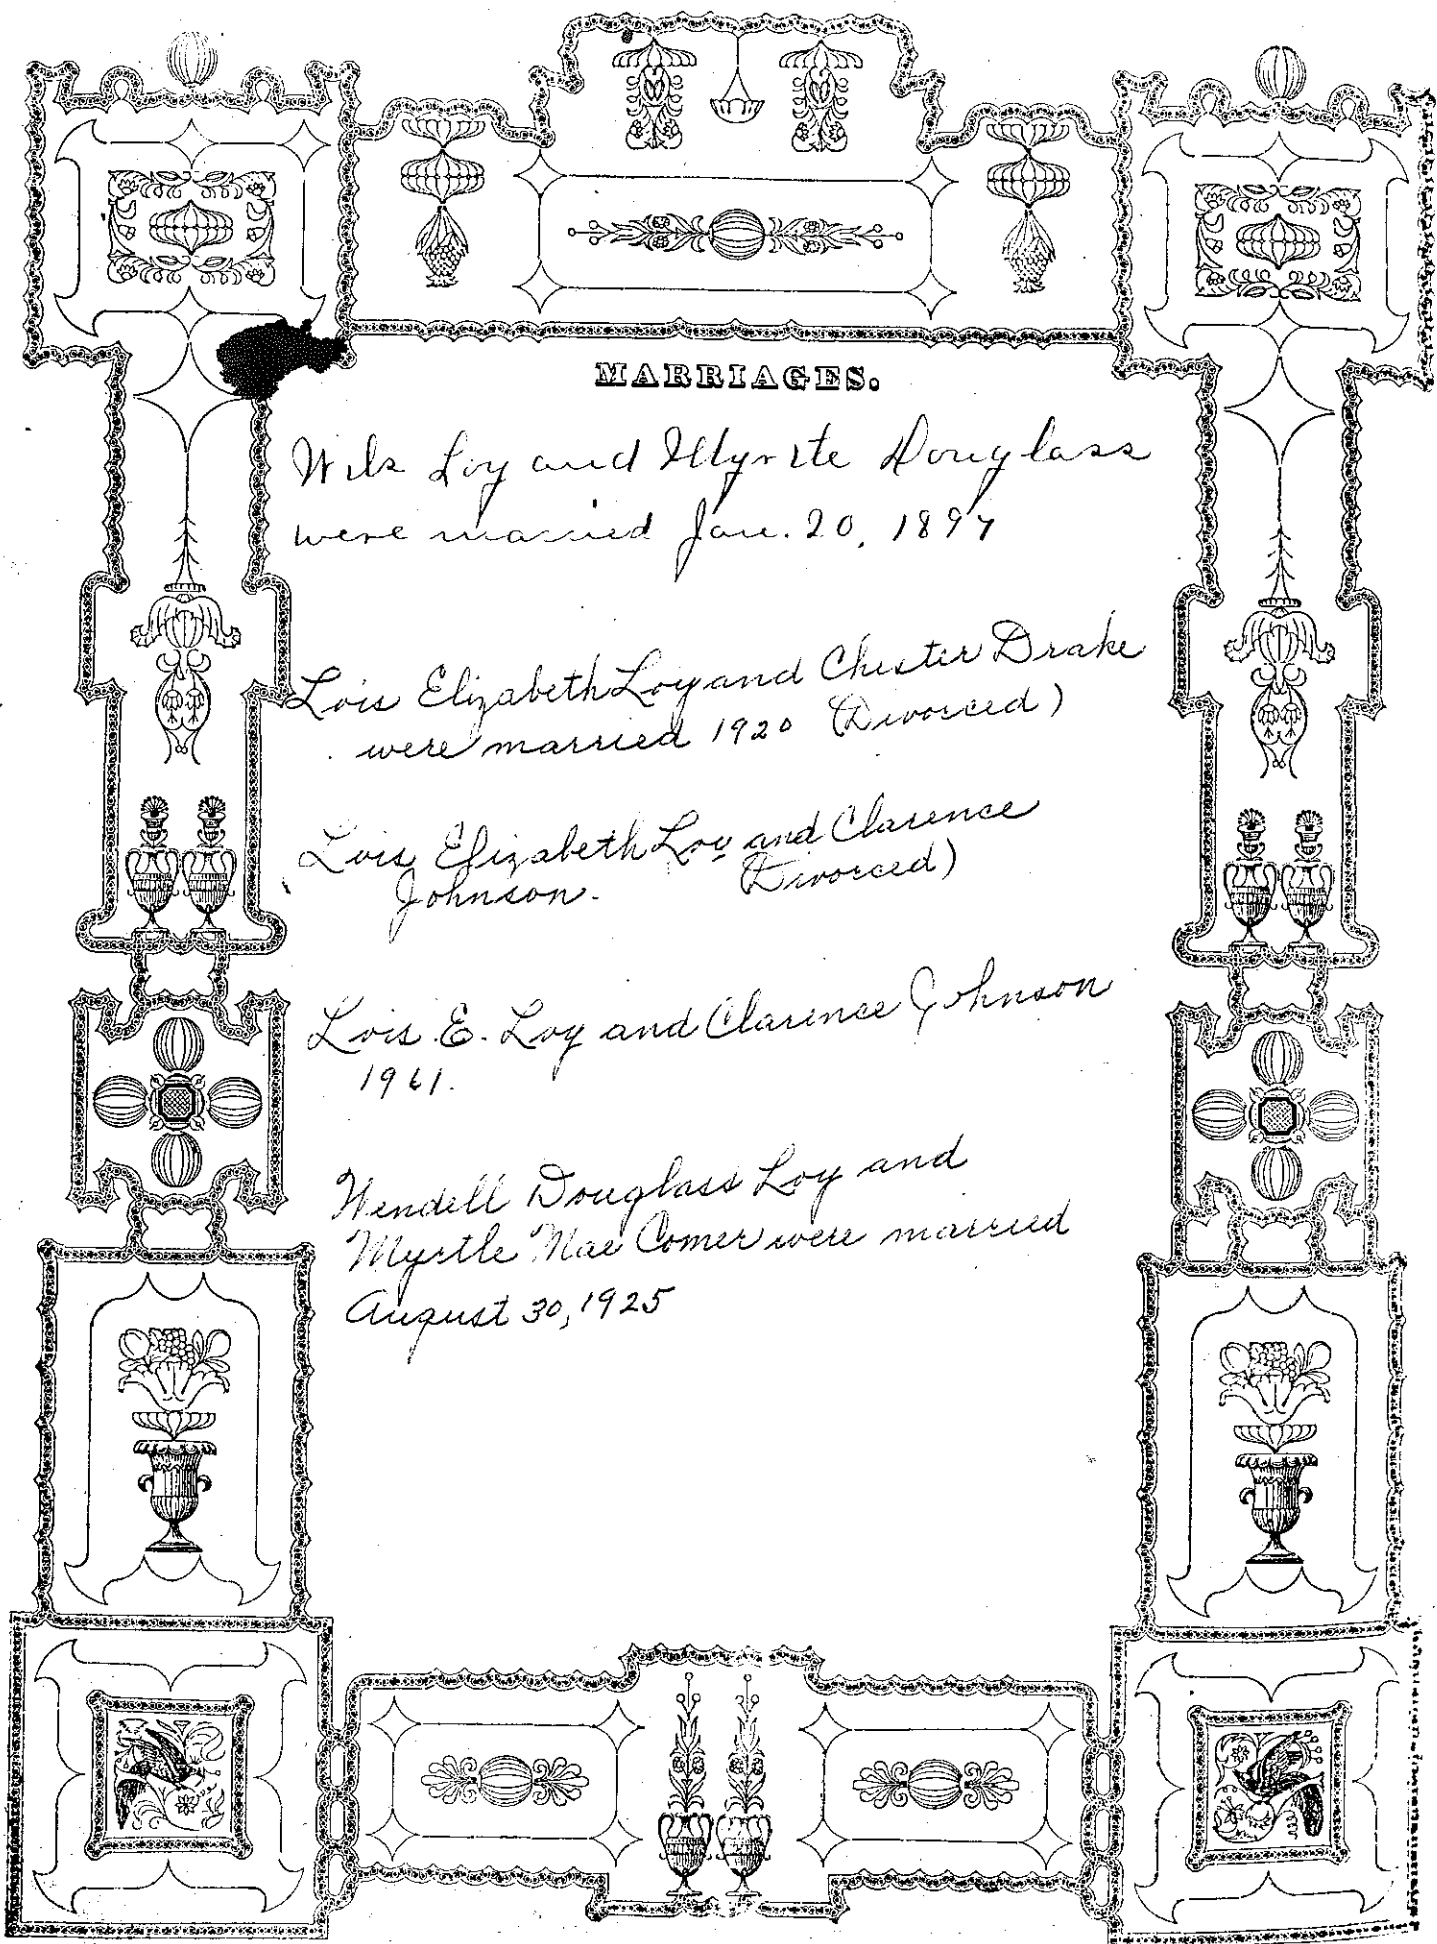 MARRIAGES.
Wils Loy and Myrtle Douglass
were married Jan. 20, 1897
Lois Elizabeth Loy and Chester Drake
were married 1920 (Divorced)
Lois Elizabeth Loy and Clarence
Johnson. Divorced)
Lois E. Loy and Clarence Johnson
1961.
Wendell Douglass Loy and
Myrtle Mae Comer were married
August 30, 1925